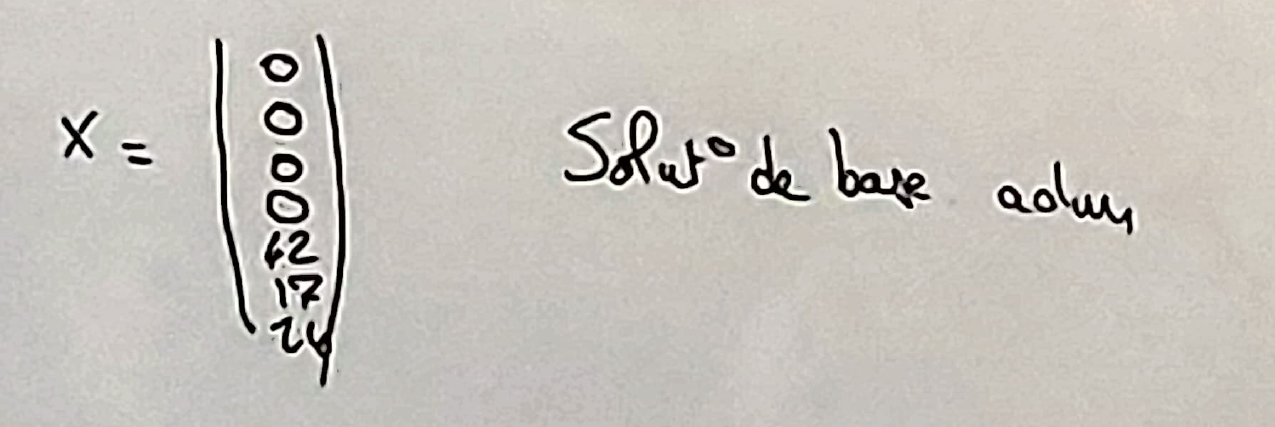 X =
0
0
0
0
42
17
24
Solut° de base adm